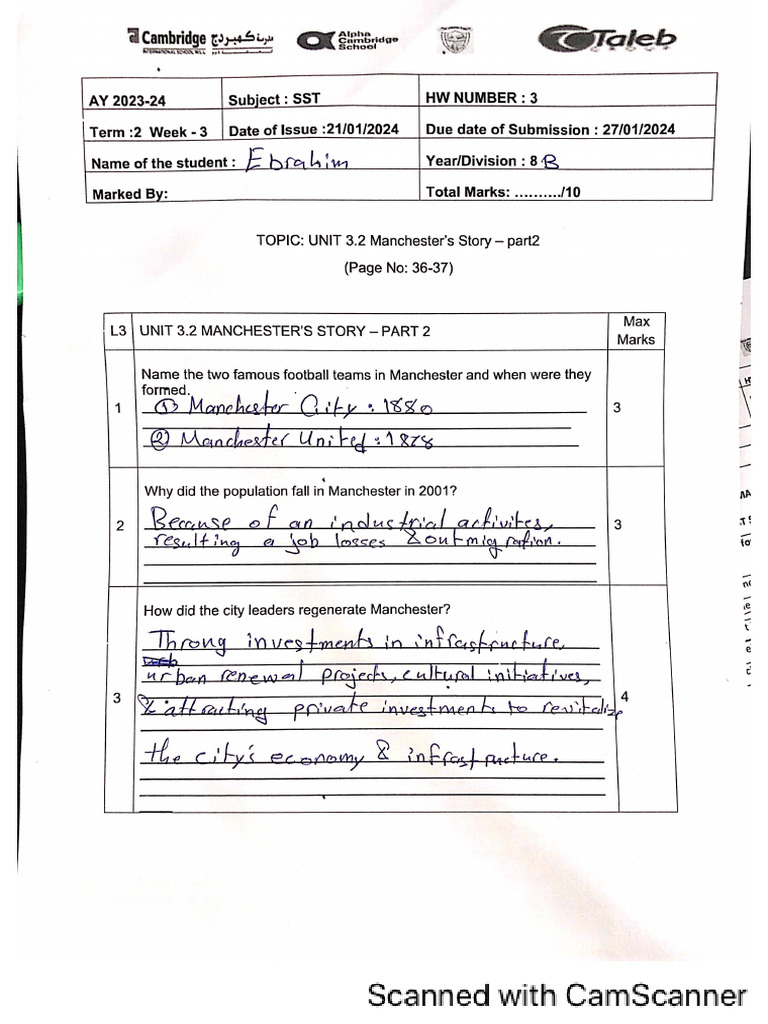 Cambridge مدرسة كمبردج
Alpha
Cambridge
School
Taleb
AY 2023-24 Subject : SST HW NUMBER : 3
Term :2 Week - 3 Date of Issue :21/01/2024 Due date of Submission : 27/01/2024
Name of the student : Ebrahim Year/Division : 8 B
Marked By: Total Marks: ........../10
TOPIC: UNIT 3.2 Manchester's Story – part2
(Page No: 36-37)
L3 UNIT 3.2 MANCHESTER'S STORY – PART 2 Max
Marks
Name the two famous football teams in Manchester and when were they
formed.
1 ① Manchester City : 1880 3
② Manchester United : 1878
Why did the population fall in Manchester in 2001?
2 Because of an industrial activites, 3
resulting a job losses & outmigration.
How did the city leaders regenerate Manchester?
Throng investments in infrastructure,
urban renewal projects, cultural initiatives,
3 & attracting private investments to revitalize 4
the city's economy & infrastructure.
Scanned with CamScanner